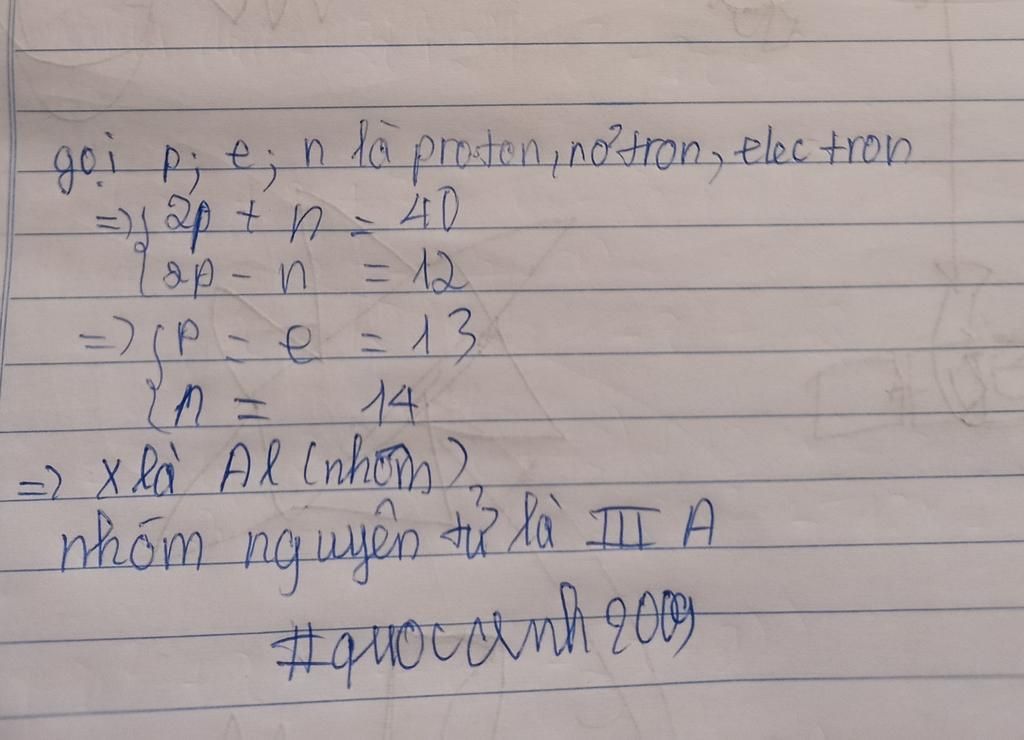 gọi p; e; n là proston, nơtron, electron
=> { 2p + n = 40
{ 2p - n = 12
=> { p = e = 13
{ n = 14
=> X là Al (nhôm)
nhóm nguyên tử là III A
#quocanh2009